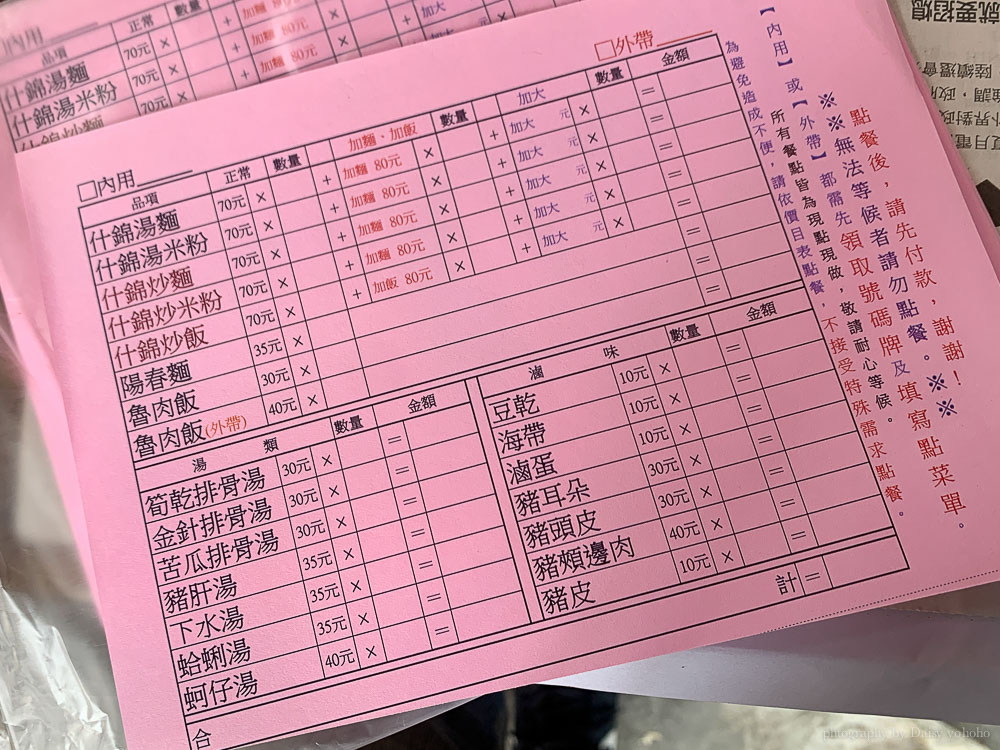 內用
品項 正常 數量
什錦湯麵 70元 × + 加麵 80元 × + 加大
什錦湯米粉 70元 × + 加麵 80元 ×
什錦炒麵 70元 ×
□內用 □外帶
品項 正常 數量 加麵、加飯 數量 加大 數量 金額
什錦湯麵 70元 × + 加麵 80元 × + 加大 元 × =
什錦湯米粉 70元 × + 加麵 80元 × + 加大 元 × =
什錦炒麵 70元 × + 加麵 80元 × + 加大 元 × =
什錦炒米粉 70元 × + 加麵 80元 × + 加大 元 × =
什錦炒飯 70元 × + 加飯 80元 × + 加大 元 × =
陽春麵 35元 × =
魯肉飯 30元 × =
魯肉飯(外帶) 40元 × =
湯類 數量 金額
筍乾排骨湯 30元 × =
金針排骨湯 30元 × =
苦瓜排骨湯 30元 × =
豬肝湯 35元 × =
下水湯 35元 × =
蛤蜊湯 35元 × =
蚵仔湯 40元 × =
滷味 數量 金額
豆乾 10元 × =
海帶 10元 × =
滷蛋 10元 × =
豬耳朵 30元 × =
豬頭皮 30元 × =
豬頰邊肉 40元 × =
豬皮 10元 × =
合計 =
點餐後,請先付款,謝謝!
※※無法等候者請勿點餐。※※
【內用】或【外帶】都需先領取號碼牌及填寫點菜單。
所有餐點皆為現點現做,敬請耐心等候。
為避免造成不便,請依價目表點餐,不接受特殊需求點餐。
就要招媳
photography by Daisy yohoho